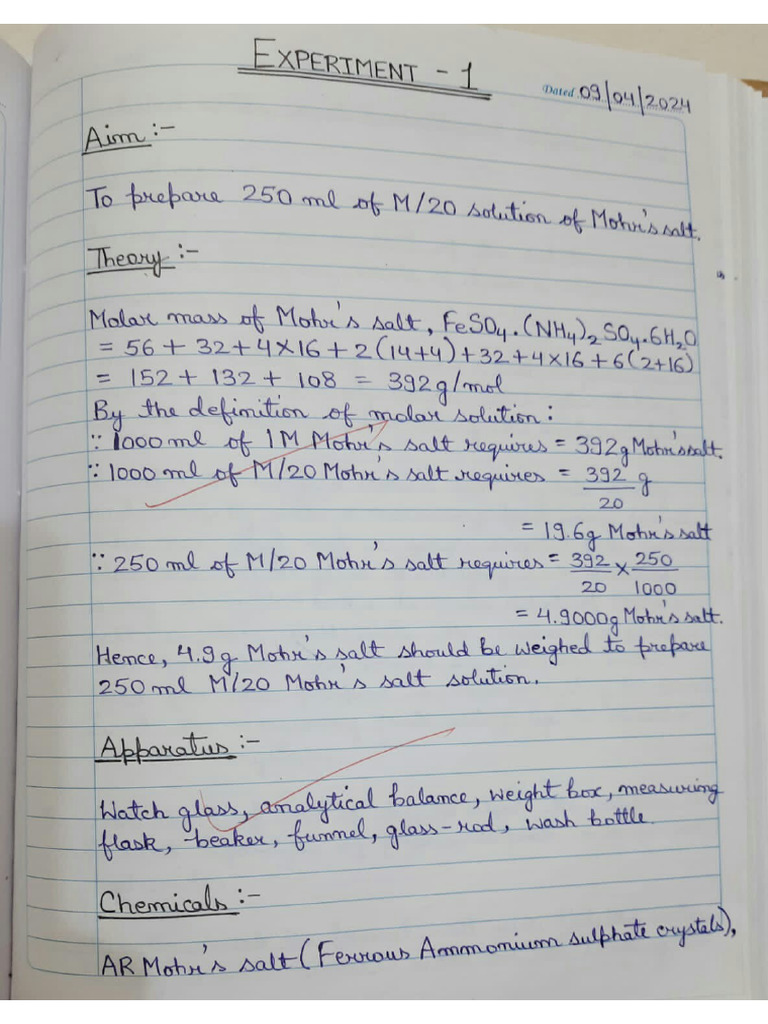 EXPERIMENT - 1
Dated 09/04/2024
Aim :-
To prepare 250 ml of M/20 solution of Mohr's salt.
Theory :-
Molar mass of Mohr's salt, FeSO₄.(NH₄)₂SO₄.6H₂O
= 56 + 32 + 4×16 + 2(14+4) + 32 + 4×16 + 6(2+16)
= 152 + 132 + 108 = 392g/mol
By the definition of molar solution :
∵ 1000 ml of 1M Mohr's salt requires = 392g Mohr's salt.
∵ 1000 ml of M/20 Mohr's salt requires = 392/20 g
= 19.6g Mohr's salt
∵ 250 ml of M/20 Mohr's salt requires = 392/20 × 250/1000
= 4.9000g Mohr's salt.
Hence, 4.9g Mohr's salt should be weighed to prepare
250 ml M/20 Mohr's salt solution.
Apparatus :-
Watch glass, analytical balance, weight box, measuring
flask, beaker, funnel, glass-rod, wash bottle.
Chemicals :-
AR Mohr's salt (Ferrous Ammonium sulphate crystals),